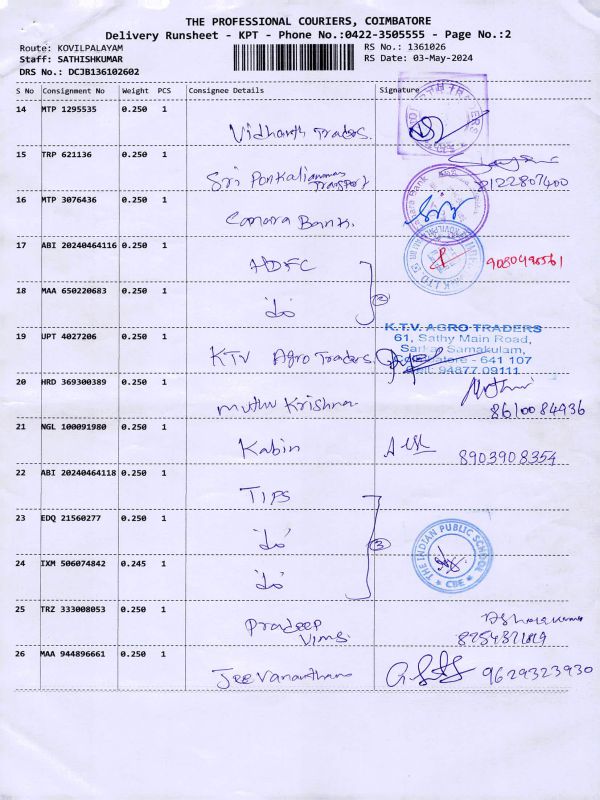 THE PROFESSIONAL COURIERS, COIMBATORE
Delivery Runsheet - KPT - Phone No.:0422-3505555 - Page No.:2
Route: KOVILPALAYAM RS No.: 1361026
Staff: SATHISHKUMAR RS Date: 03-May-2024
DRS No.: DCJB136102602
S No Consignment No Weight PCS Consignee Details Signature
14 MTP 1295535 0.250 1
Vidharth Traders.
15 TRP 621136 0.250 1
Sri Ponkaliamman
Transport 8122807400
16 MTP 3076436 0.250 1
Canara Bank.
17 ABI 20240464116 0.250 1
HDFC 9080498561
18 MAA 650220683 0.250 1
do (2)
19 UPT 4027206 0.250 1
K.T.V. AGRO TRADERS
61, Sathy Main Road,
Samakulam,
641 107
94877 09111
KTV Agro Traders
20 HRD 369300389 0.250 1
Muthu Krishna 8610084936
21 NGL 100091980 0.250 1
Kabin 8903908354
22 ABI 20240464118 0.250 1
TIPS
23 EDQ 21560277 0.250 1
do (3)
THE INDIAN PUBLIC SCHOOL
CBE
24 IXM 506074842 0.245 1
do
25 TRZ 333008053 0.250 1
Pradeep
Vims
26 MAA 944896661 0.250 1
Jeevananthan 9629323930